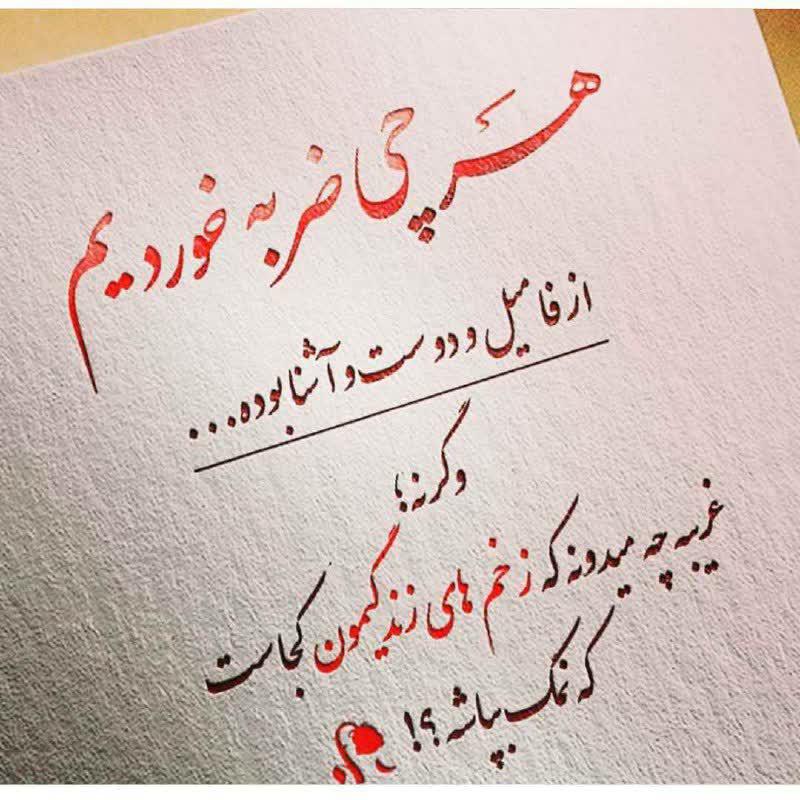 هر چی ضربه خوردیم
از فامیل و دوست و آشنا بوده...
وگرنه؛
غریبه چه میدونه که زخم های زندگیمون کجاست
که نمک بپاشه؟!